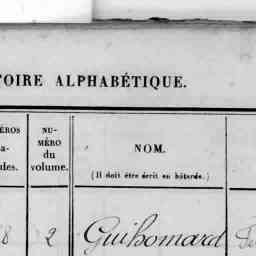 TOIRE ALPHABÉTIQUE.
ÉROS
a-
ules.
NU-
MÉRO
du
volume.
NOM.
(Il doit être écrit en bâtarde.)
8 2 Guihomard